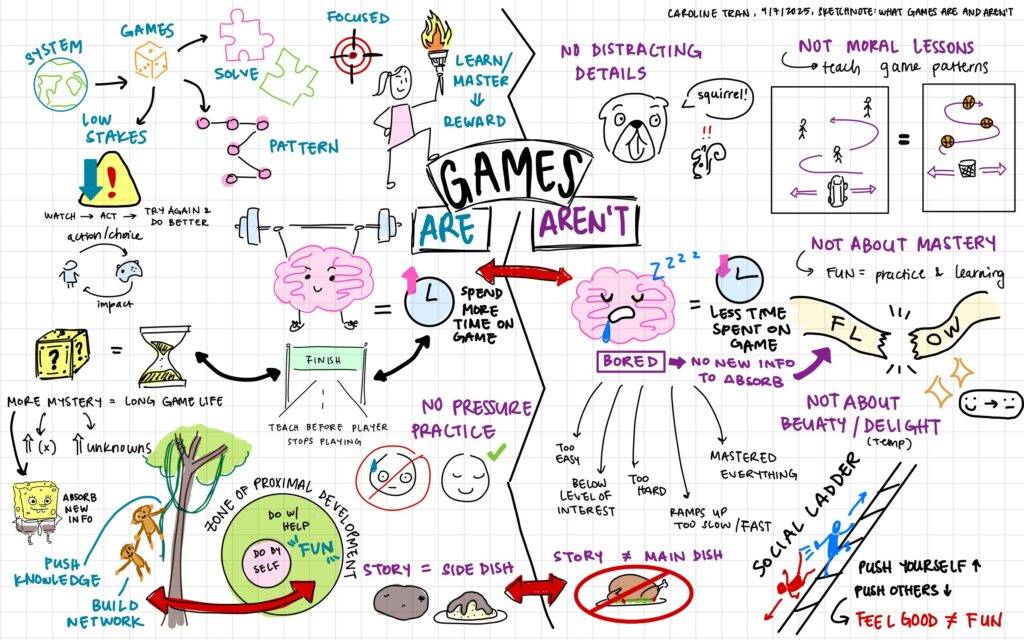 CAROLINE TRAN, 4/7/2025, SKETCHNOTE: WHAT GAMES ARE AND AREN'T
GAMES
ARE
AREN'T
SYSTEM
GAMES
SOLVE
FOCUSED
LEARN/
MASTER
REWARD
LOW
STAKES
!
PATTERN
WATCH → ACT → TRY AGAIN &
DO BETTER
action/choice
impact
=
SPEND
MORE
TIME ON
GAME
? ? ?
=
FINISH
MORE MYSTERY = LONG GAME LIFE
TEACH BEFORE PLAYER
STOPS PLAYING
⇑(x)
⇑unknowns
ABSORB
NEW
INFO
PUSH
KNOWLEDGE
BUILD
NETWORK
ZONE OF PROXIMAL DEVELOPMENT
DO W/
HELP
"FUN"
DO BY
SELF
NO PRESSURE
PRACTICE
STORY = SIDE DISH
NO DISTRACTING
DETAILS
squirrel!
!!
NOT MORAL LESSONS
teach game patterns
=
NOT ABOUT MASTERY
FUN = practice & learning
ZZZZ
=
LESS TIME
SPENT ON
GAME
BORED → NO NEW INFO
TO ABSORB
FL OW
TOO
EASY
BELOW
LEVEL OF
INTEREST
TOO
HARD
RAMPS UP
TOO SLOW/FAST
MASTERED
EVERYTHING
NOT ABOUT
BEUATY/DELIGHT
(temp)
STORY ≠ MAIN DISH
SOCIAL LADDER
PUSH YOURSELF ↑
PUSH OTHERS ↓
FEEL GOOD ≠ FUN